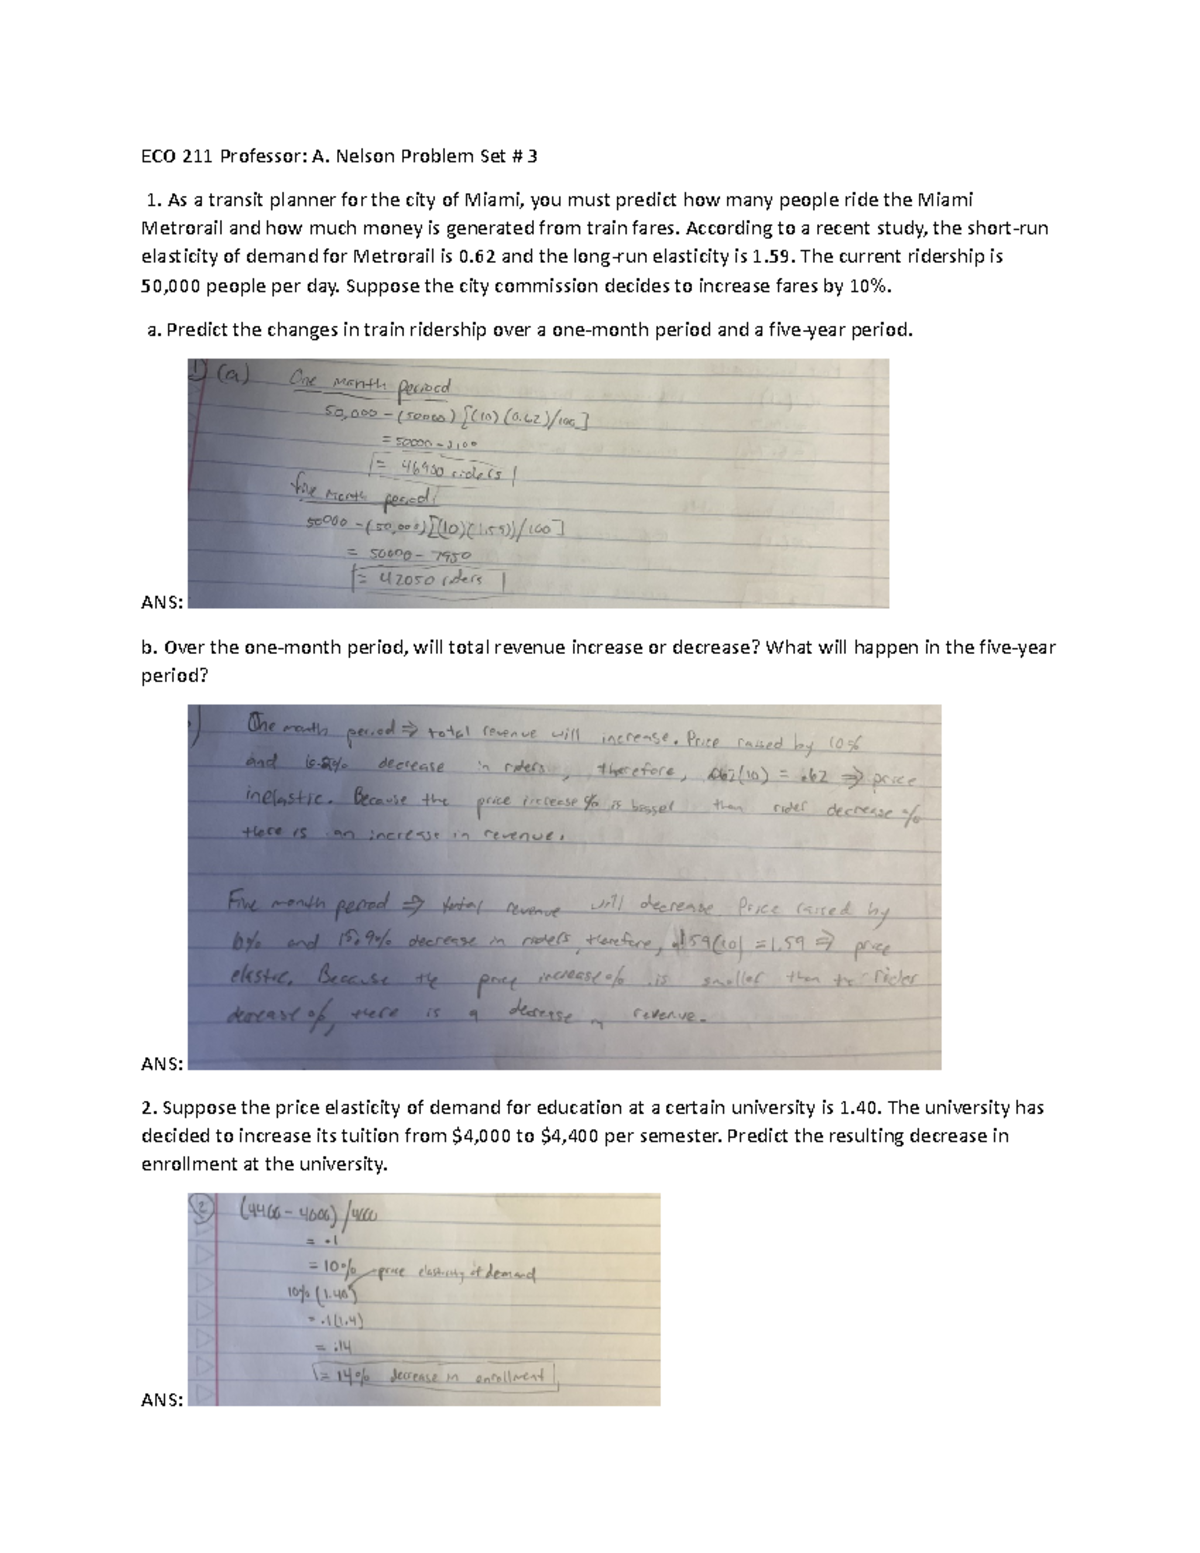 ECO 211 Professor: A. Nelson Problem Set # 3
1. As a transit planner for the city of Miami, you must predict how many people ride the Miami
Metrorail and how much money is generated from train fares. According to a recent study, the short-run
elasticity of demand for Metrorail is 0.62 and the long-run elasticity is 1.59. The current ridership is
50,000 people per day. Suppose the city commission decides to increase fares by 10%.
a. Predict the changes in train ridership over a one-month period and a five-year period.
1) (a) One month period
50,000 - (50000) [(10) (0.62)/100]
= 50000 - 3100
= 46900 riders
five month period:
50000 - (50,000) [(10)(1.59)/100]
= 50000 - 7950
= 42050 riders
ANS:
b. Over the one-month period, will total revenue increase or decrease? What will happen in the five-year
period?
One month period ⇒ total revenue will increase. Price raised by 10%
and decrease in riders, therefore, (10) = .62 ⇒ price
inelastic. Because the price increase % is bigger than rider decrease %
there is an increase in revenue.
Five month period ⇒ total revenue will decrease Price raised by
10% and 15.9% decrease in riders, therefore, .159(10) = 1.59 ⇒ price
elastic. Because the price increase % is smaller than the rider
decrease %, there is a decrease in revenue.
ANS:
2. Suppose the price elasticity of demand for education at a certain university is 1.40. The university has
decided to increase its tuition from $4,000 to $4,400 per semester. Predict the resulting decrease in
enrollment at the university.
2 (4400 - 4000) /4000
= .1
= 10% price elasticity of demand
10% (1.40)
= .1(1.4)
= .14
= 14% decrease in enrollment
ANS: